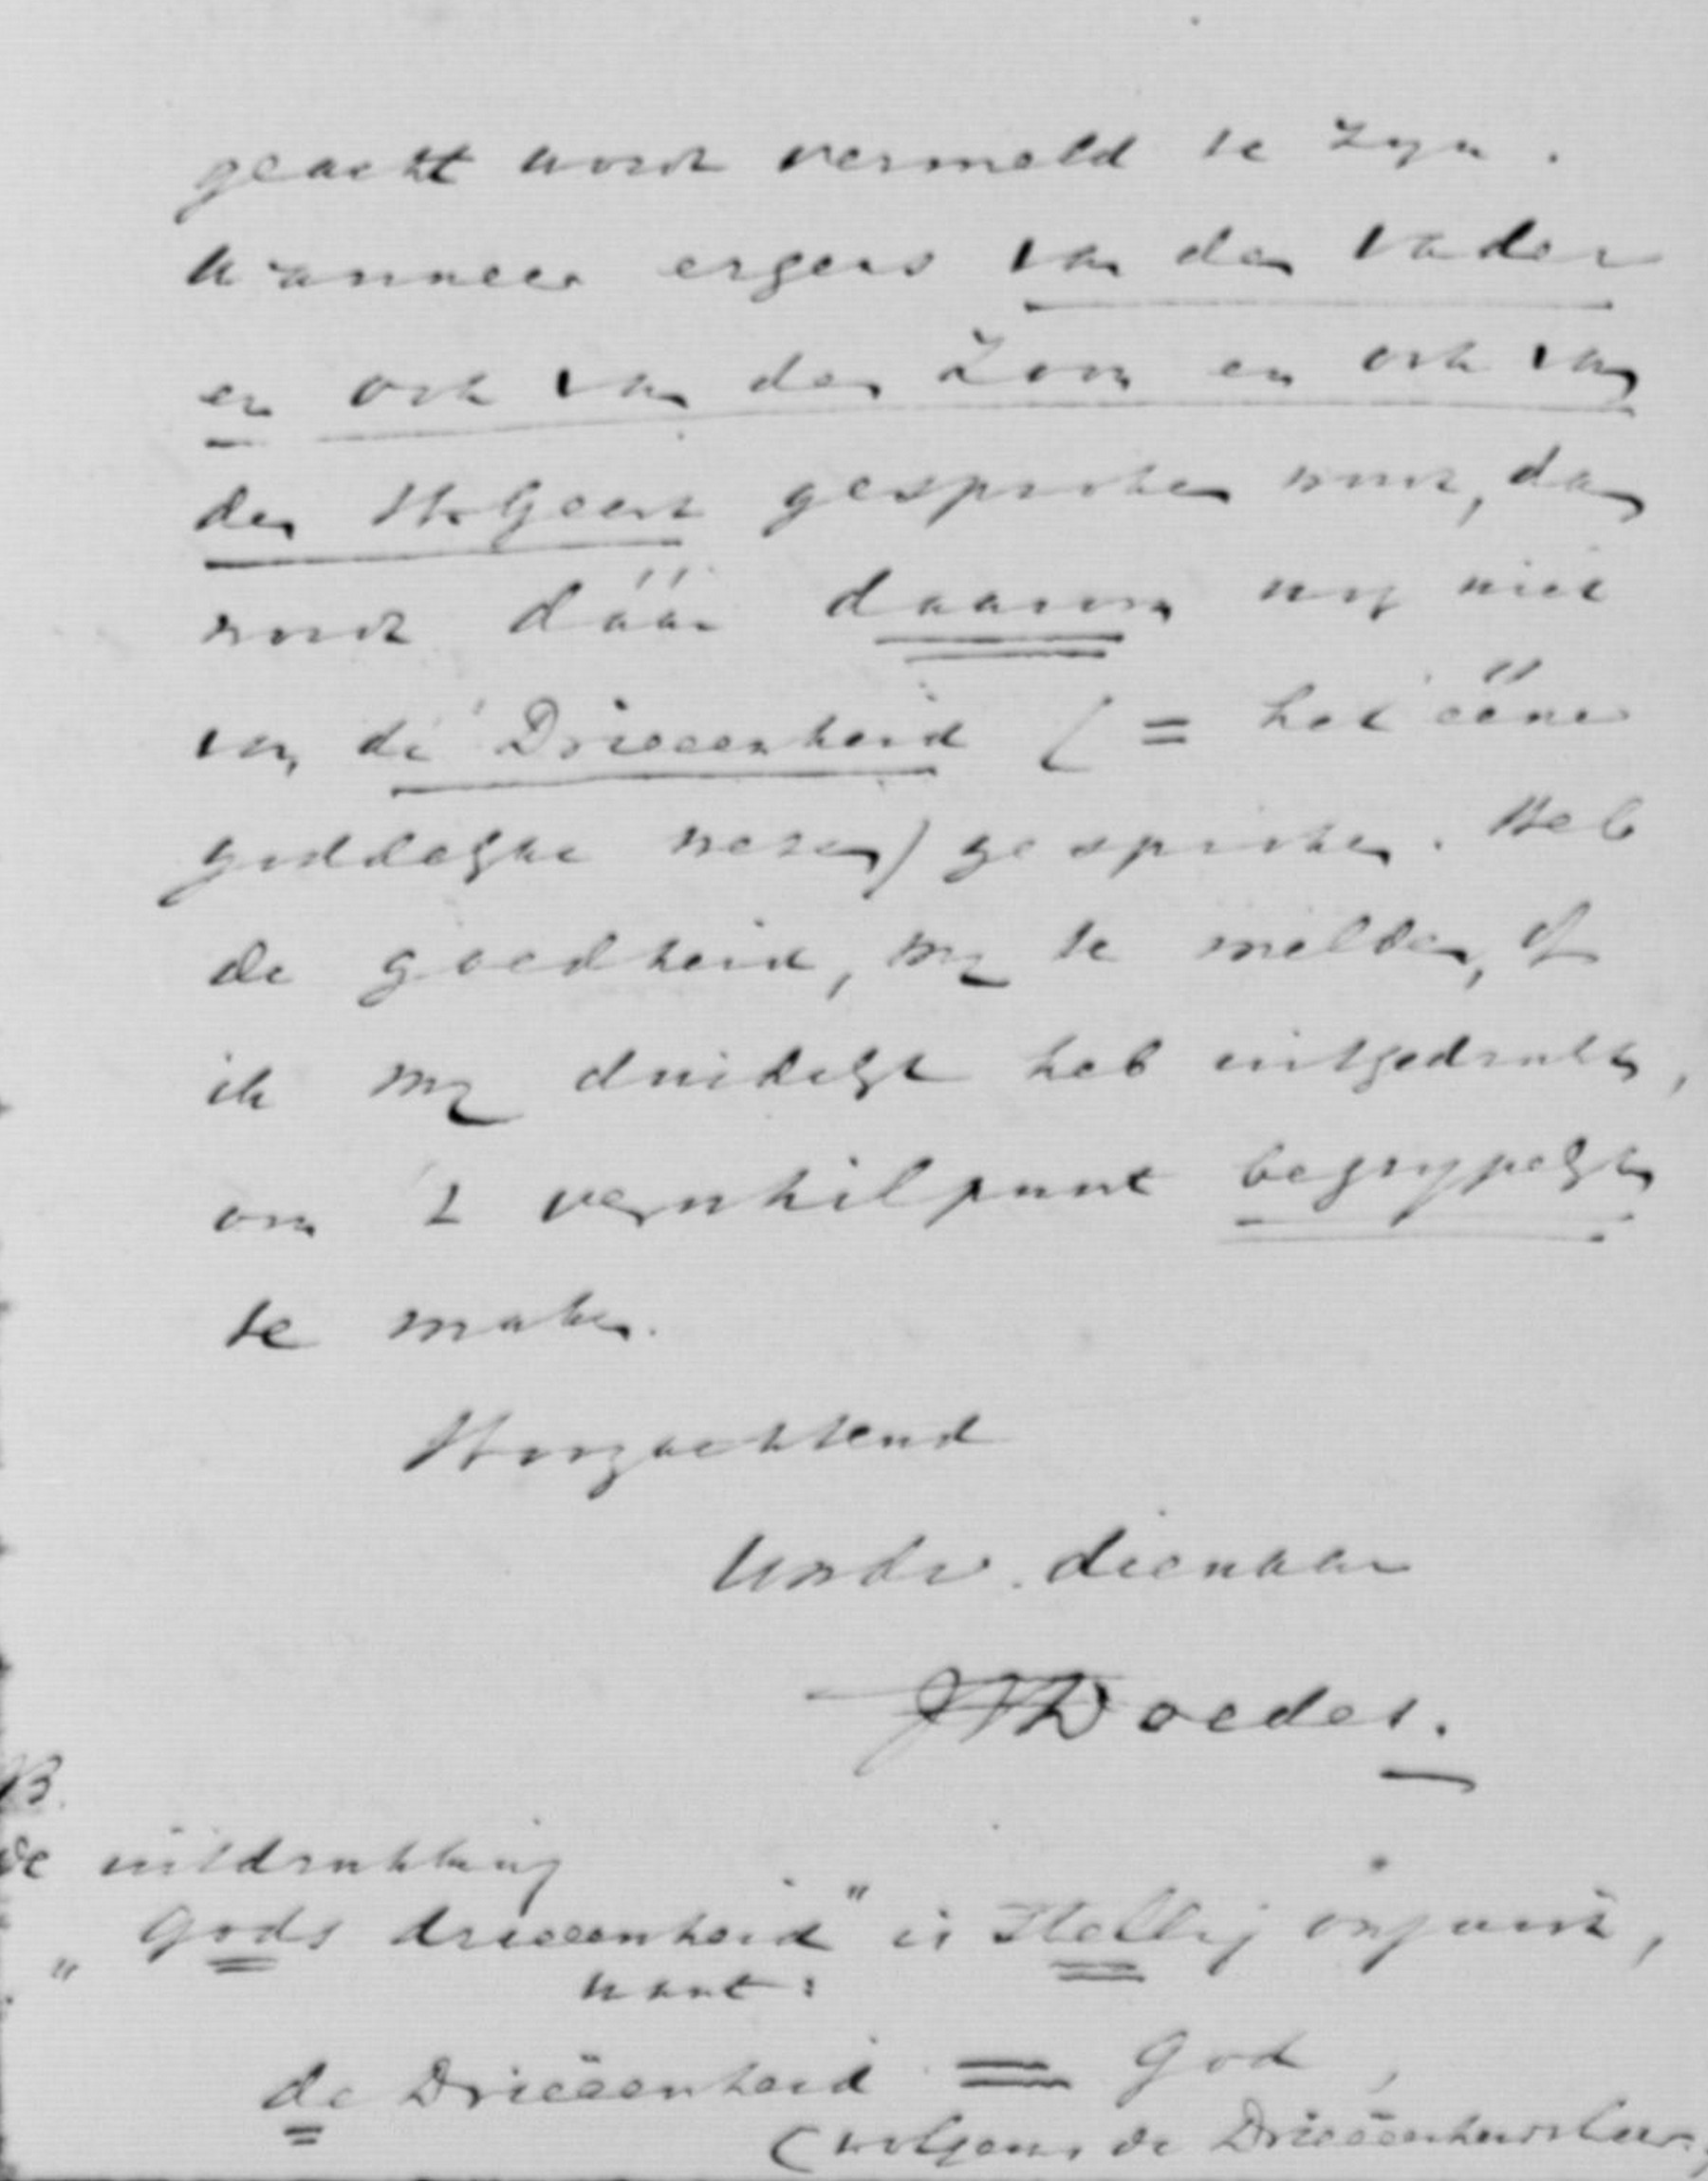 geacht wordt vermeld te zyn.
Wanneer ergens van den Vader
en ook van den Zoon en ook van
den H. Geest gesproken wordt, dan
wordt dáár daarom nog niet
van de Drieeenheid (= het ééne
goddelyke wezen) gesproken. Heb
de goedheid, my te melden, of
ik my duidelyk heb uitgedrukt,
om 't verschilpunt begrypelyk
te maken.
Hoogachtend
Uw dv. dienaar
JIDoedes.
B.
de uitdrukking
„Gods drieeenheid" is stellig onjuist,
want:
de Drieëenheid = God,
(volgens de Drieëenheidsleer,